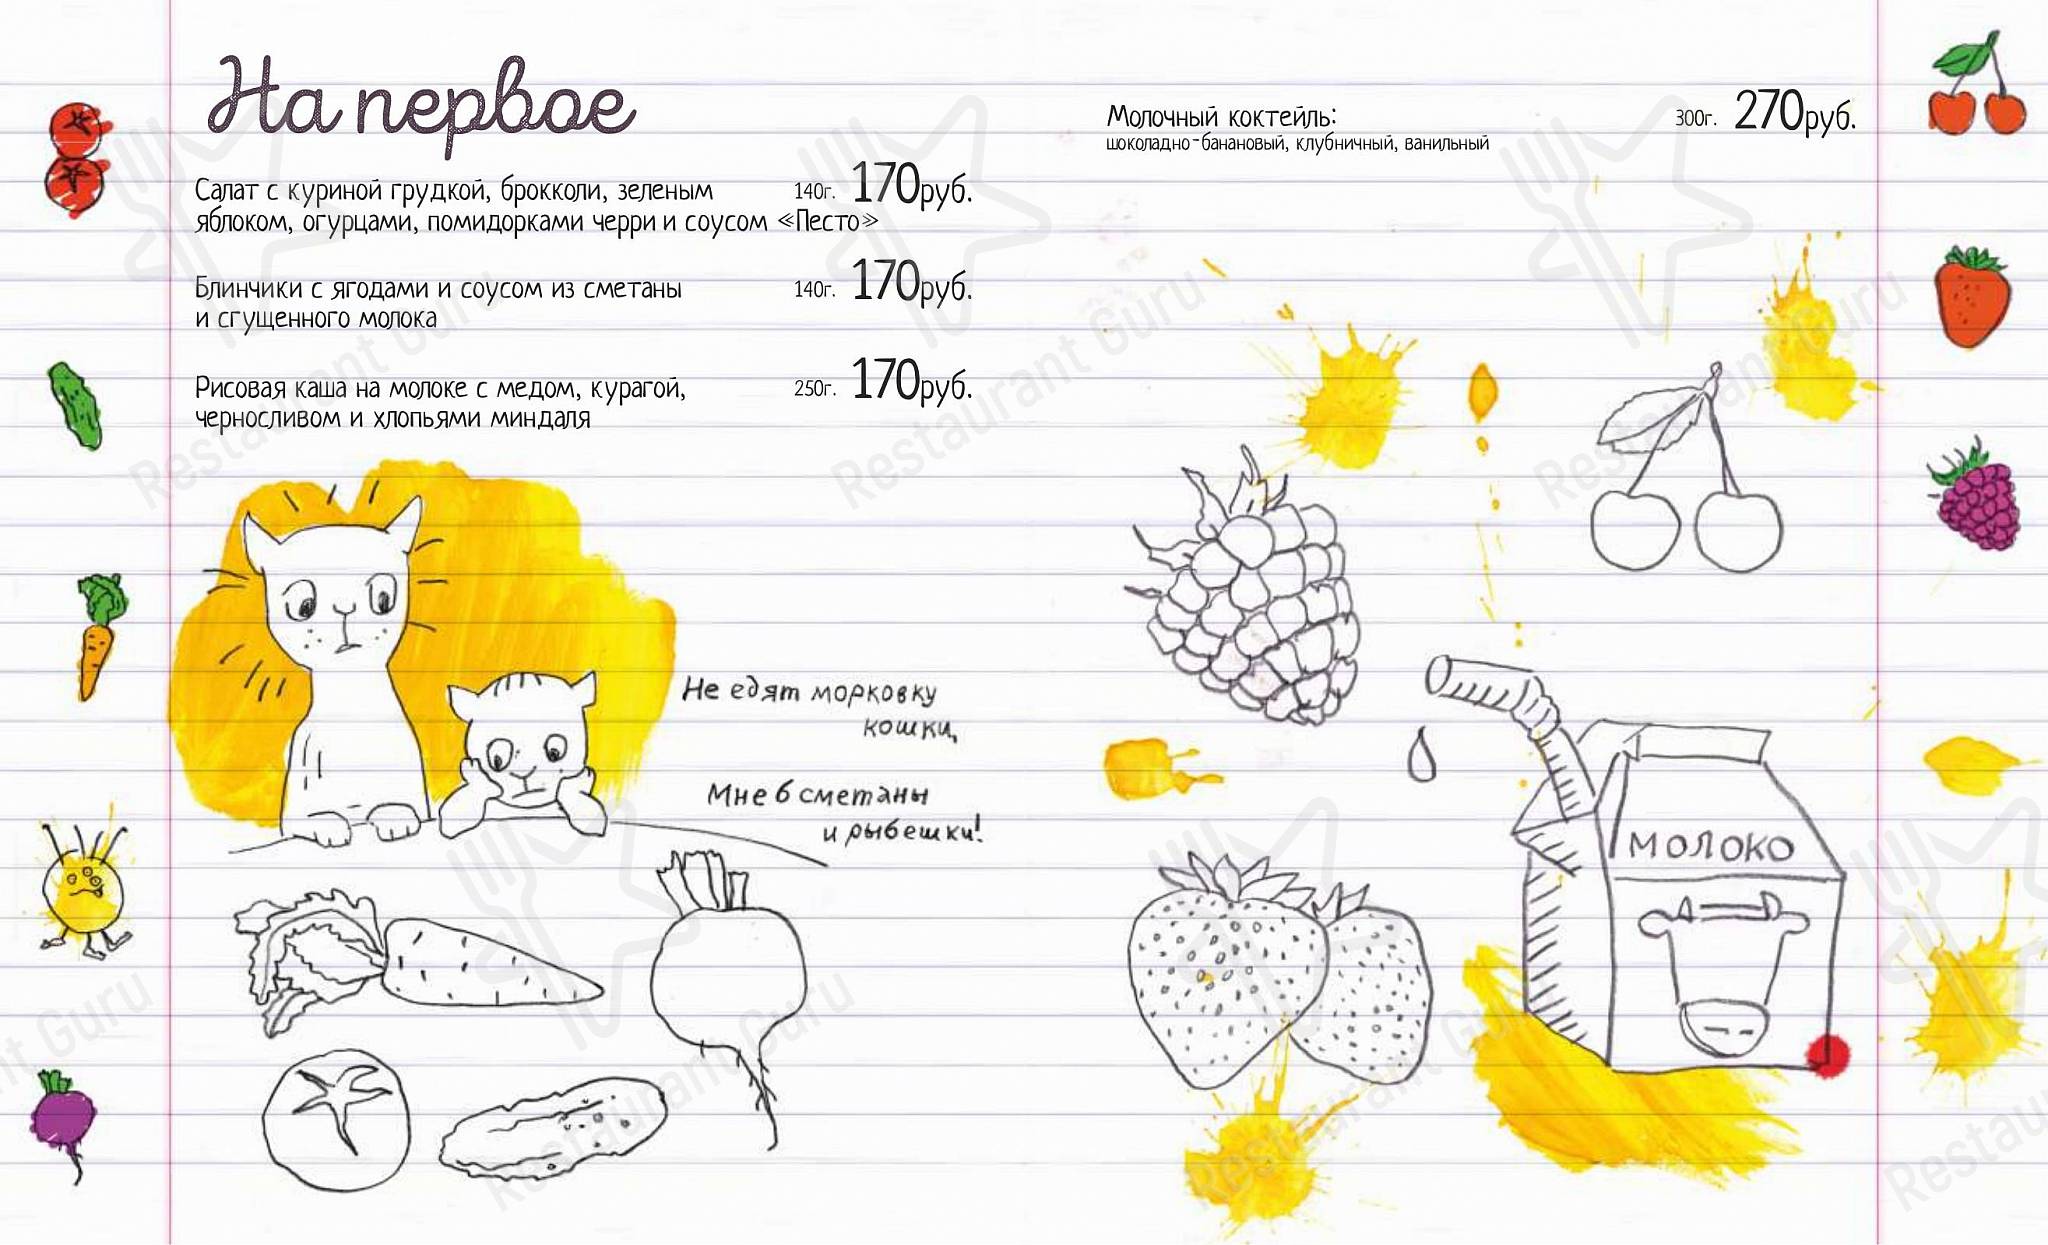 На первое
Салат с куриной грудкой, брокколи, зеленым 140г. 170руб.
яблоком, огурцами, помидорками черри и соусом «Песто»
Блинчики с ягодами и соусом из сметаны 140г. 170руб.
и сгущенного молока
Рисовая каша на молоке с медом, курагой, 250г. 170руб.
черносливом и хлопьями миндаля
Не едят морковку
кошки,
Мне б сметаны
и рыбешки!
Молочный коктейль: 300г. 270руб.
шоколадно-банановый, клубничный, ванильный
МОЛОКО
Restaurant Guru
Restaurant Guru
Restaurant Guru
Restaurant Guru
Restaurant Guru
Restaurant Guru
Restaurant Guru